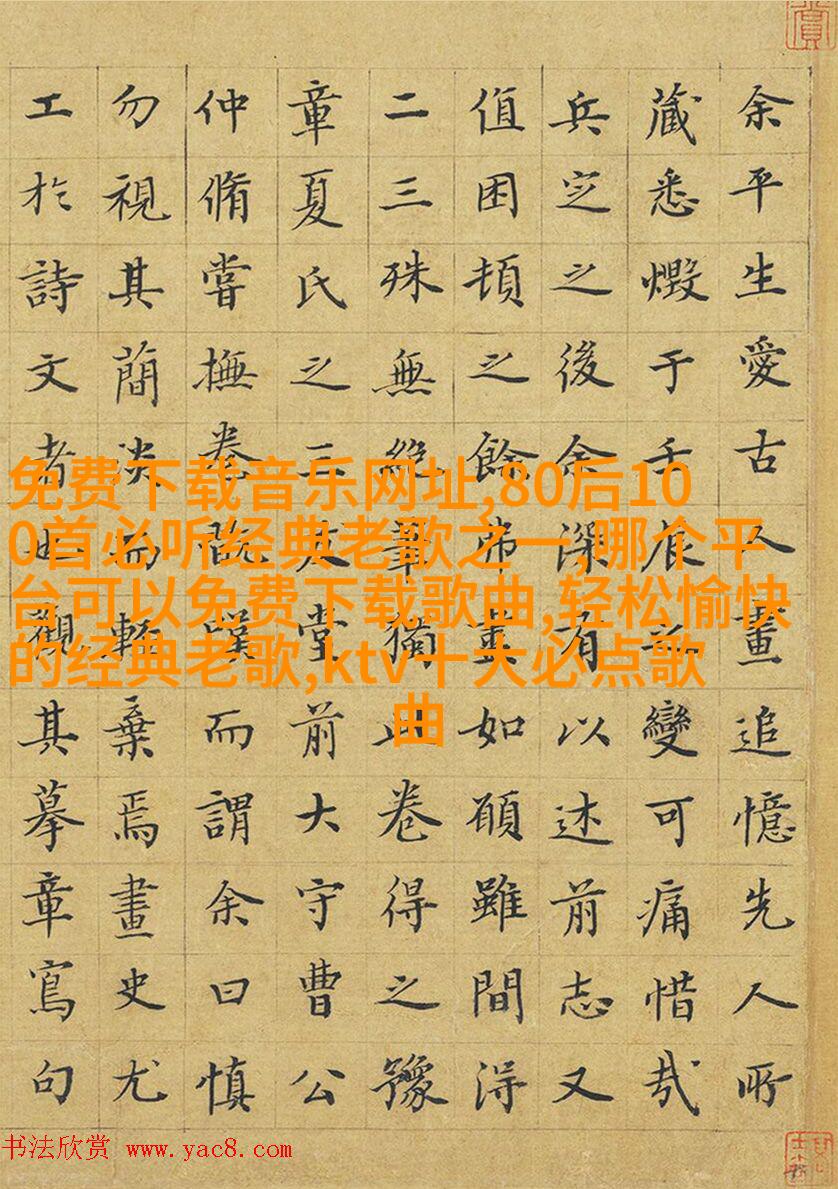 余平生愛古人畫追憶先人所
藏悉燬于壬辰之變可痛惜哉
兵定之後余深有以述前志又
值困頓之餘弗盡如願雖間得
二三殊無絕筆獨此卷得之豫
章夏氏之三友堂前大守曹公
仲脩嘗撫卷既嘆而謂余曰慎
勿視其簡淡而輕棄焉畫史尤
工於詩文者也觀其摹章寫句
免费下载音乐网址,80后10
0首必听经典老歌之一,哪个平
台可以免费下载歌曲,轻松愉快
的经典老歌,ktv十大必点歌
曲
书法欣赏 www.yac8.com